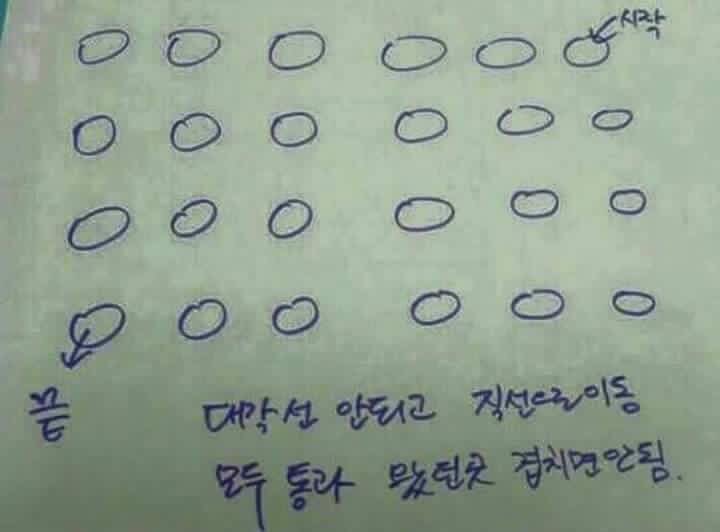 시작
끝
대각선 안되고 직선으로이동
모두 통과 왔던곳 겹치면안됨.